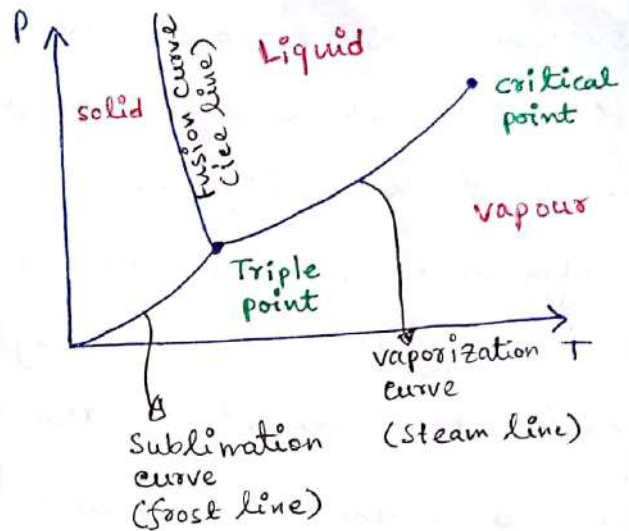 P
solid
Fusion curve
(ice line)
Liquid
critical
point
vapour
Triple
point
T
vaporization
curve
(steam line)
Sublimation
curve
(frost line)